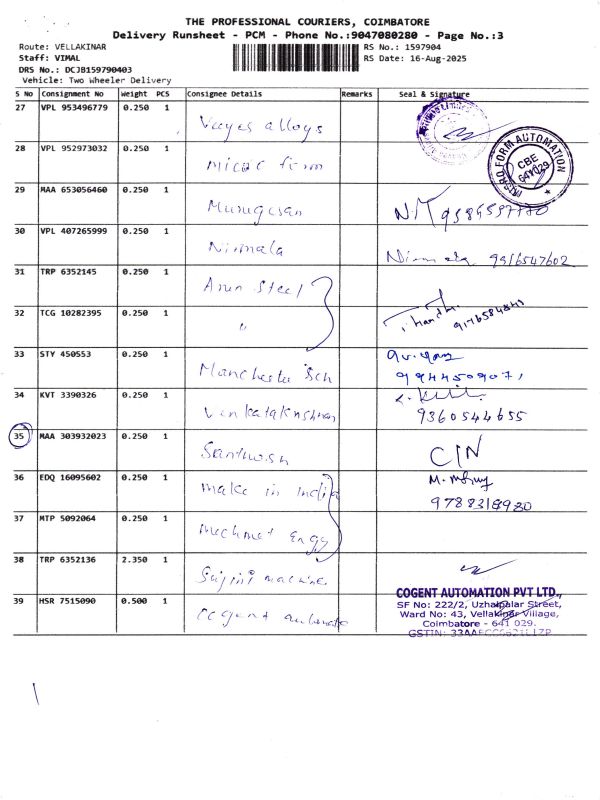 THE PROFESSIONAL COURIERS, COIMBATORE
Delivery Runsheet - PCM - Phone No.:9047080280 - Page No.:3
Route: VELLAKINAR RS No.: 1597904
Staff: VIMAL RS Date: 16-Aug-2025
DRS No.: DCJB159790403
Vehicle: Two Wheeler Delivery
S No Consignment No Weight PCS Consignee Details Remarks Seal & Signature
27 VPL 953496779 0.250 1 Vayes alloys
28 VPL 952973032 0.250 1 micac form MICRO FORM AUTOMATION CBE
29 MAA 653056460 0.250 1 Murugesan
30 VPL 407265999 0.250 1 Nirmala Nirmala 9916547602
31 TRP 6352145 0.250 1 Arun Steel
32 TCG 10282395 0.250 1 "
33 STY 450553 0.250 1 Manchester Sch 9944509071
34 KVT 3390326 0.250 1 Venkatakrishnan 9360544655
35 MAA 303932023 0.250 1 Santhosh C/N
36 EDQ 16095602 0.250 1 make in India 9788318980
37 MTP 5092064 0.250 1 mechmet Engg
38 TRP 6352136 2.350 1 Sujini machine
39 HSR 7515090 0.500 1 cogent automatio
COGENT AUTOMATION PVT LTD.,
SF No: 222/2, Uzhaipalar Street,
Ward No: 43, Vellakinar Village,
Coimbatore - 641 029.
GSTIN: